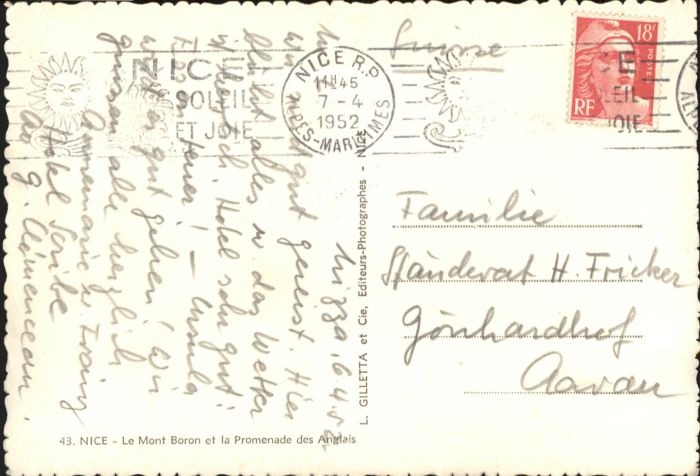 Nizza, 6.4.52.
sind gut gereist. Hier
blüht alles u das Wetter
herrlich, Hotel sehr gut!
teuer! — Ursula
gut gehen! Wir
grüssen alle herzlich
Annemarie u Franz
Hotel Scribe
av. G. Clémenceau.
Suisse
NICE R.P.
11H45
7-4
1952
ALPES-MARITIMES
NICE
SOLEIL
ET JOIE
18F
POSTES
RF
E
LEIL
JOIE
Familie
Ständerat H. Fricker
Gönhardhof
Aarau
L. GILLETTA et Cie, Editeurs-Photographes - NICE
43. NICE - Le Mont Boron et la Promenade des Anglais